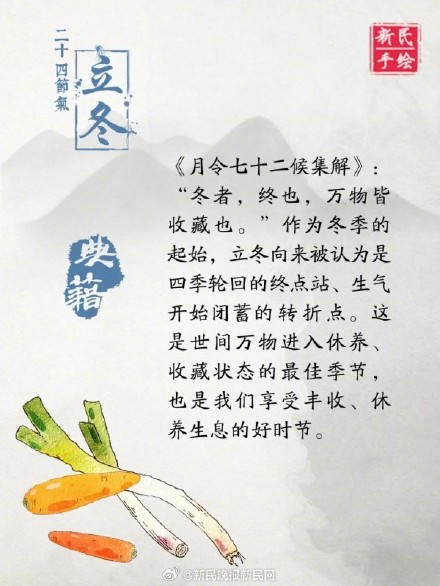 二十四節氣
立冬
新民
手绘
《月令七十二候集解》：
“冬者，终也，万物皆
收藏也。”作为冬季的
起始，立冬向来被认为是
四季轮回的终点站、生气
开始闭蓄的转折点。这
是世间万物进入休养、
收藏状态的最佳季节，
也是我们享受丰收、休
养生息的好时节。
典籍
@新民晚报新民网